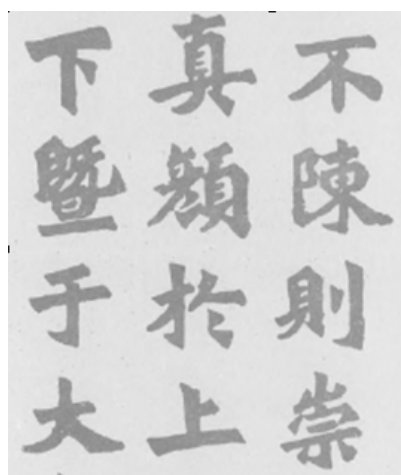 不陳則崇
真顏於上
下暨于大